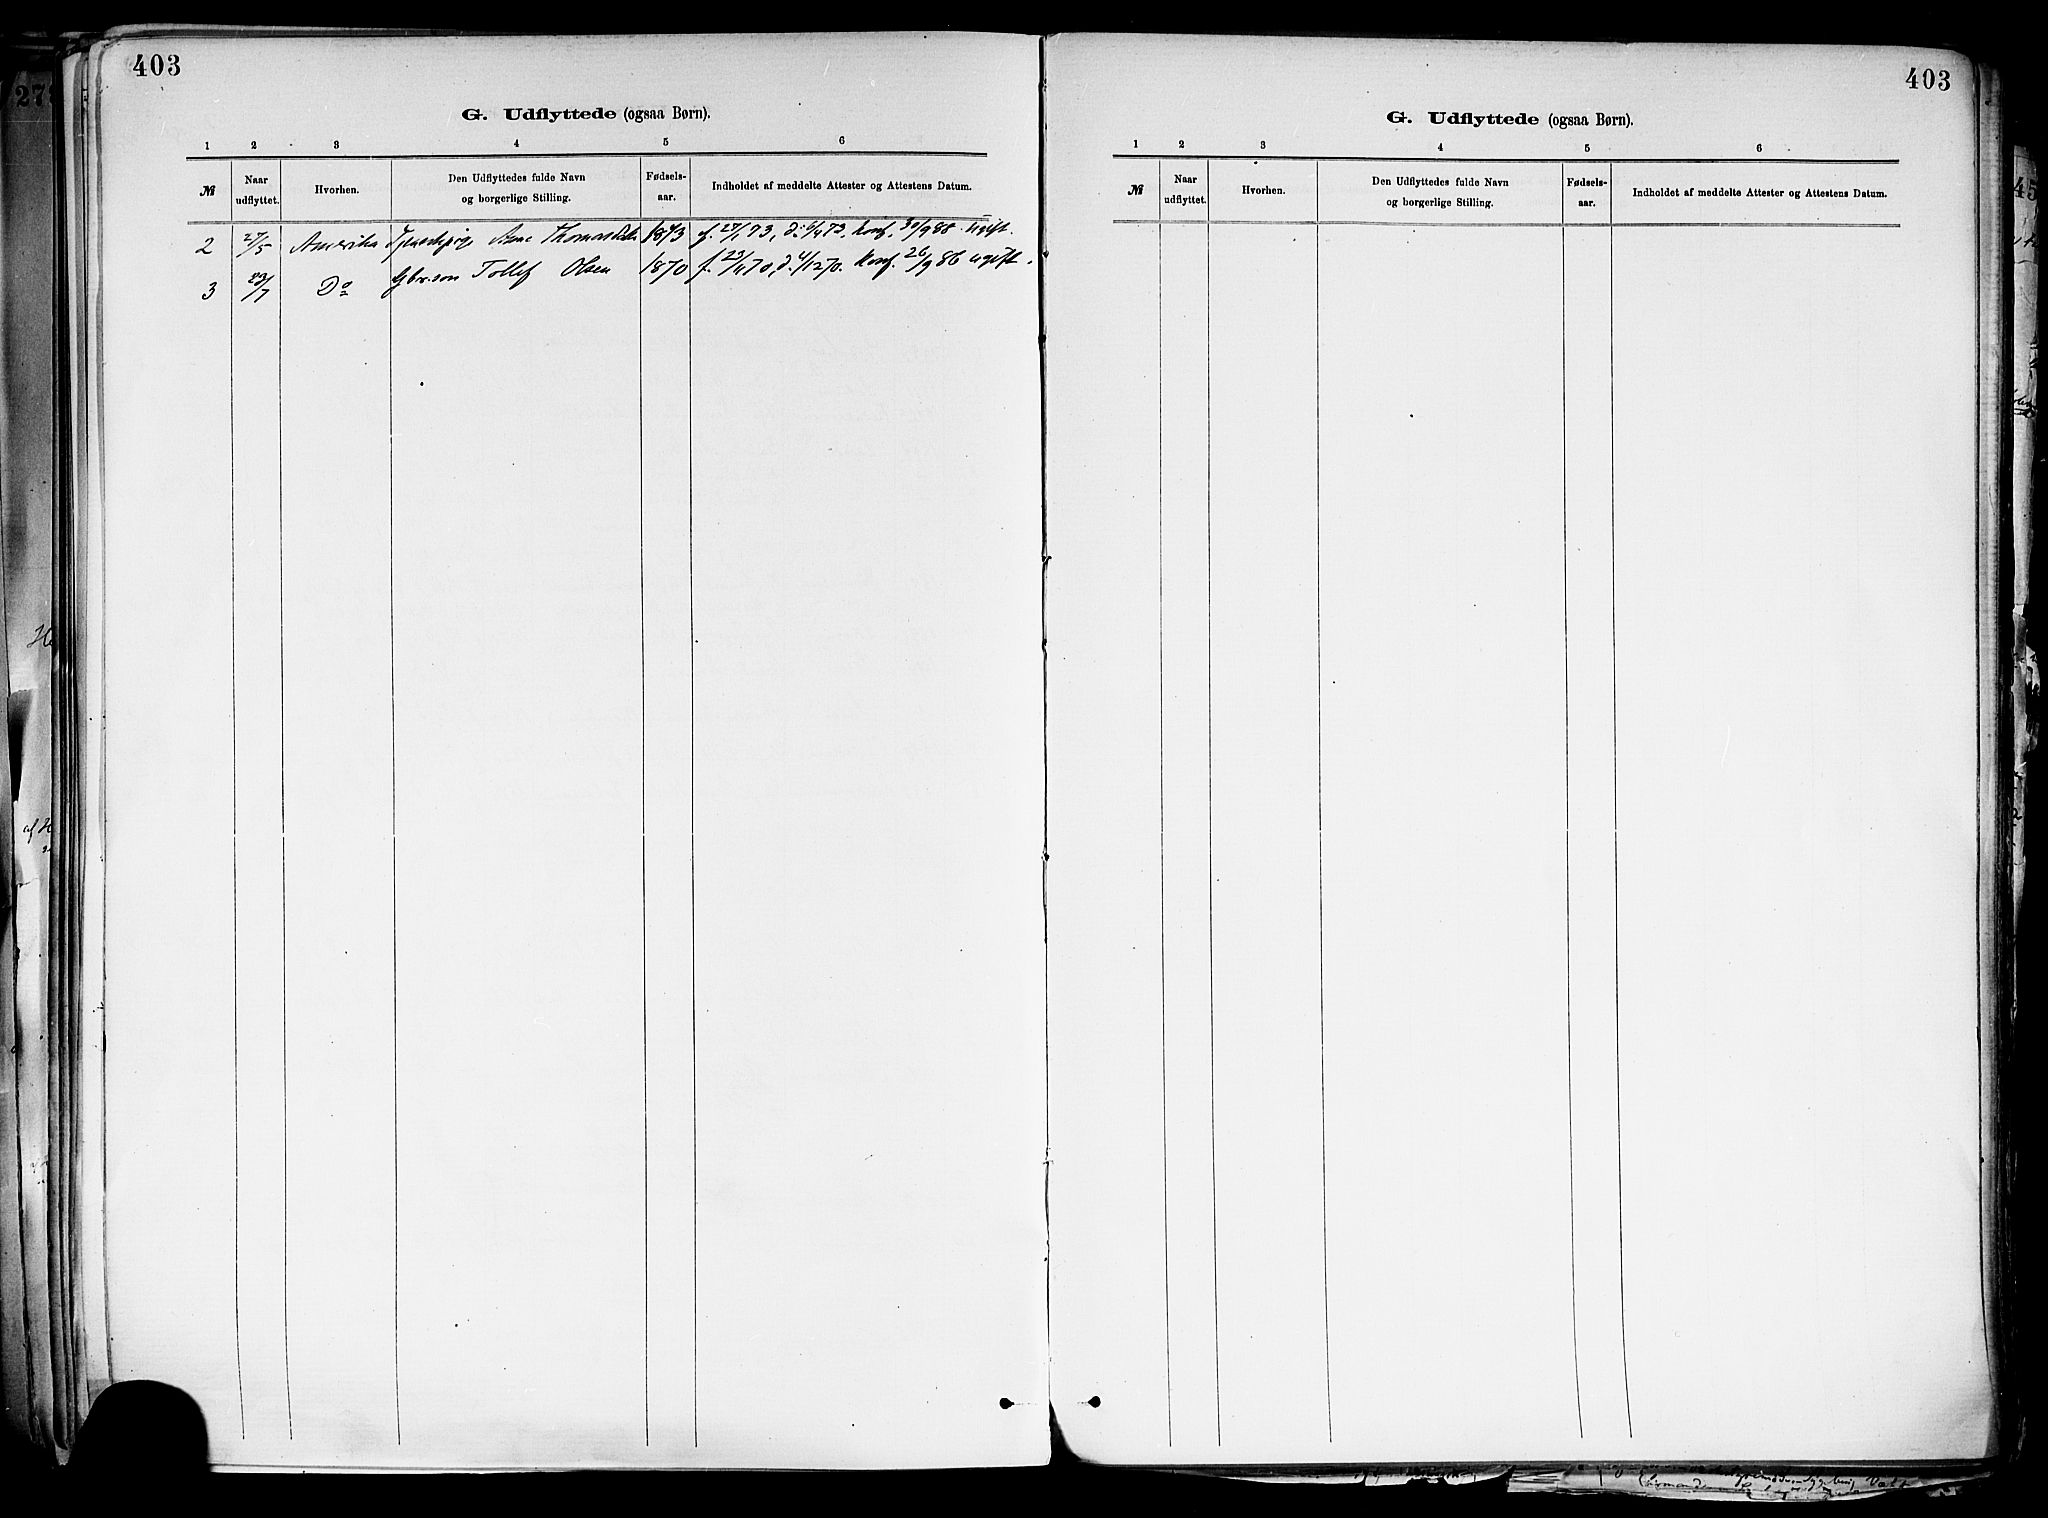 403
G. Udflyttede (ogsaa Børn).
1 2 3 4 5 6
№ Naar udflyttet. Hvorhen. Den Udflyttedes fulde Navn og borgerlige Stilling. Fødsels-aar. Indholdet af meddelte Attester og Attestens Datum.
2 27/5 Amerika Anne 1873 f. 27/1 73, d. 6/4 73, konf. 30/9 88 ugift.
3 23/7 Do Gbr.søn Tollef Olsen 1870 f. 23/11 70, d. 4/12 70. konf. 26/9 86 ugift.
403
G. Udflyttede (ogsaa Børn).
1 2 3 4 5 6
№ Naar udflyttet. Hvorhen. Den Udflyttedes fulde Navn og borgerlige Stilling. Fødsels-aar. Indholdet af meddelte Attester og Attestens Datum.